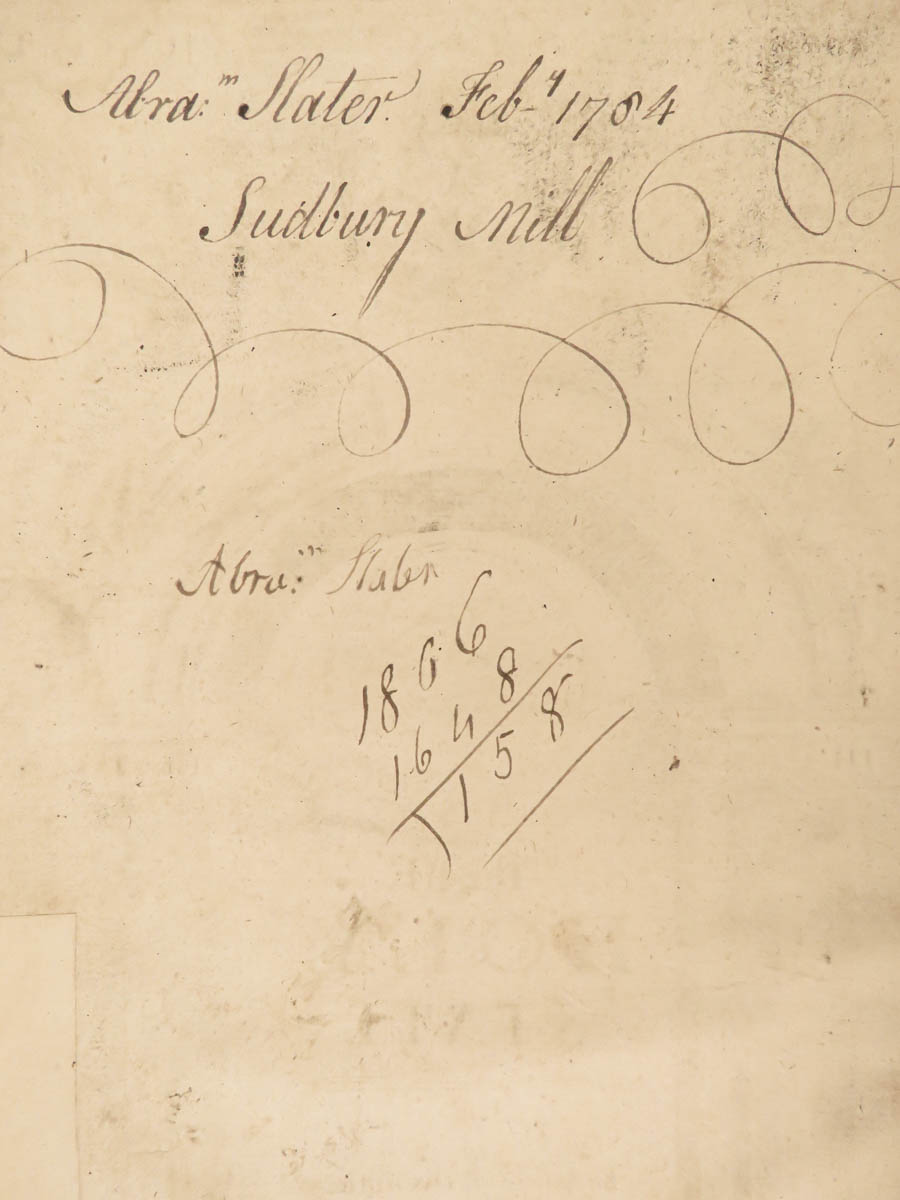 Abra:ᵐ Slater. Febʸ 1784
Sudbury Mill
Abra:ᵐ Slater
1806
1648
158